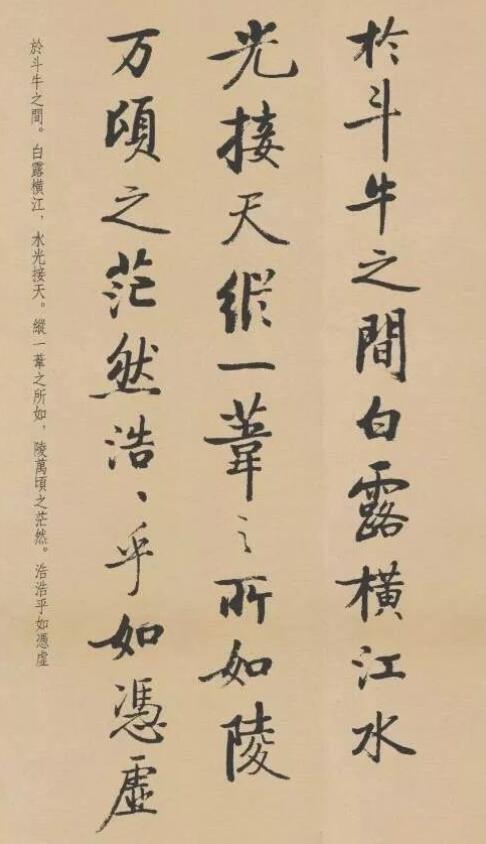 於斗牛之間白露橫江水
光接天縱一葦之所如陵
万頃之茫然浩〻乎如憑虛
於斗牛之間。白露橫江，水光接天。縱一葦之所如，陵萬頃之茫然。浩浩乎如憑虛